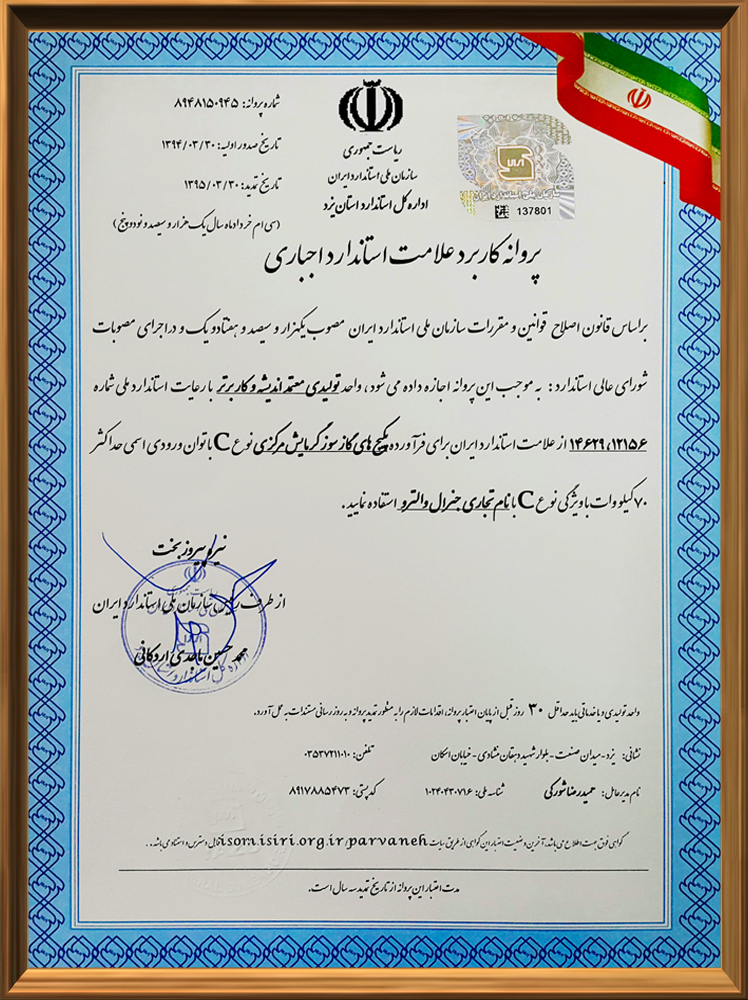 شماره پروانه: ۸۹۴۸۱۵۰۹۴۵
تاریخ صدور اولیه: ۱۳۹۴/۰۳/۳۰
تاریخ تمدید: ۱۳۹۵/۰۳/۳۰
(سی ام خرداد ماه سال یک هزار و سیصد و نود و پنج)
ریاست جمهوری
سازمان ملی استاندارد ایران
اداره کل استاندارد استان یزد
سازمان ملی استاندارد ایران
137801
پروانه کاربرد علامت استاندارد اجباری
براساس قانون اصلاح قوانین و مقررات سازمان ملی استاندارد ایران مصوب یکهزار و سیصد و هفتاد و یک و در اجرای مصوبات
شورای عالی استاندارد: به موجب این پروانه اجازه داده می شود، واحد تولیدی معتمد اندیشه و کار برتر با رعایت استاندارد ملی شماره
۱۴۶۲۹،۱۲۱۵۶ از علامت استاندارد ایران برای فرآورده پکیج های گازسوز گرمایش مرکزی نوع C با توان ورودی اسمی حداکثر
۷۰ کیلو وات با ویژگی نوع C با نام تجاری جنرال والترو استفاده نمایید.
نیره پیروزبخت
از طرف رییس سازمان ملی استاندارد ایران
محمد حسین ماجدی اردکانی
واحد تولیدی و یا خدماتی باید حداقل ۳۰ روز قبل از پایان اعتبار پروانه، اقدامات لازم را به منظور تمدید پروانه و به روز رسانی مستندات به عمل آورد.
نشانی: یزد - میدان صنعت - بلوار شهید دهقان منشادی - خیابان اسکان تلفن: ۰۳۵۳۷۲۱۱۰۱۰
نام مدیرعامل: حمیدرضا شورکی شناسه ملی: ۱۰۲۴۰۴۳۰۷۱۶ کدپستی: ۸۹۱۷۸۸۵۴۷۳
گواهی فوق جهت اطلاع می باشد، آخرین وضعیت اعتبار این گواهی از طریق سایت isom.isiri.org.ir/parvaneh قابل دسترس و استناد می باشد.
مدت اعتبار این پروانه از تاریخ تمدید سه سال است.